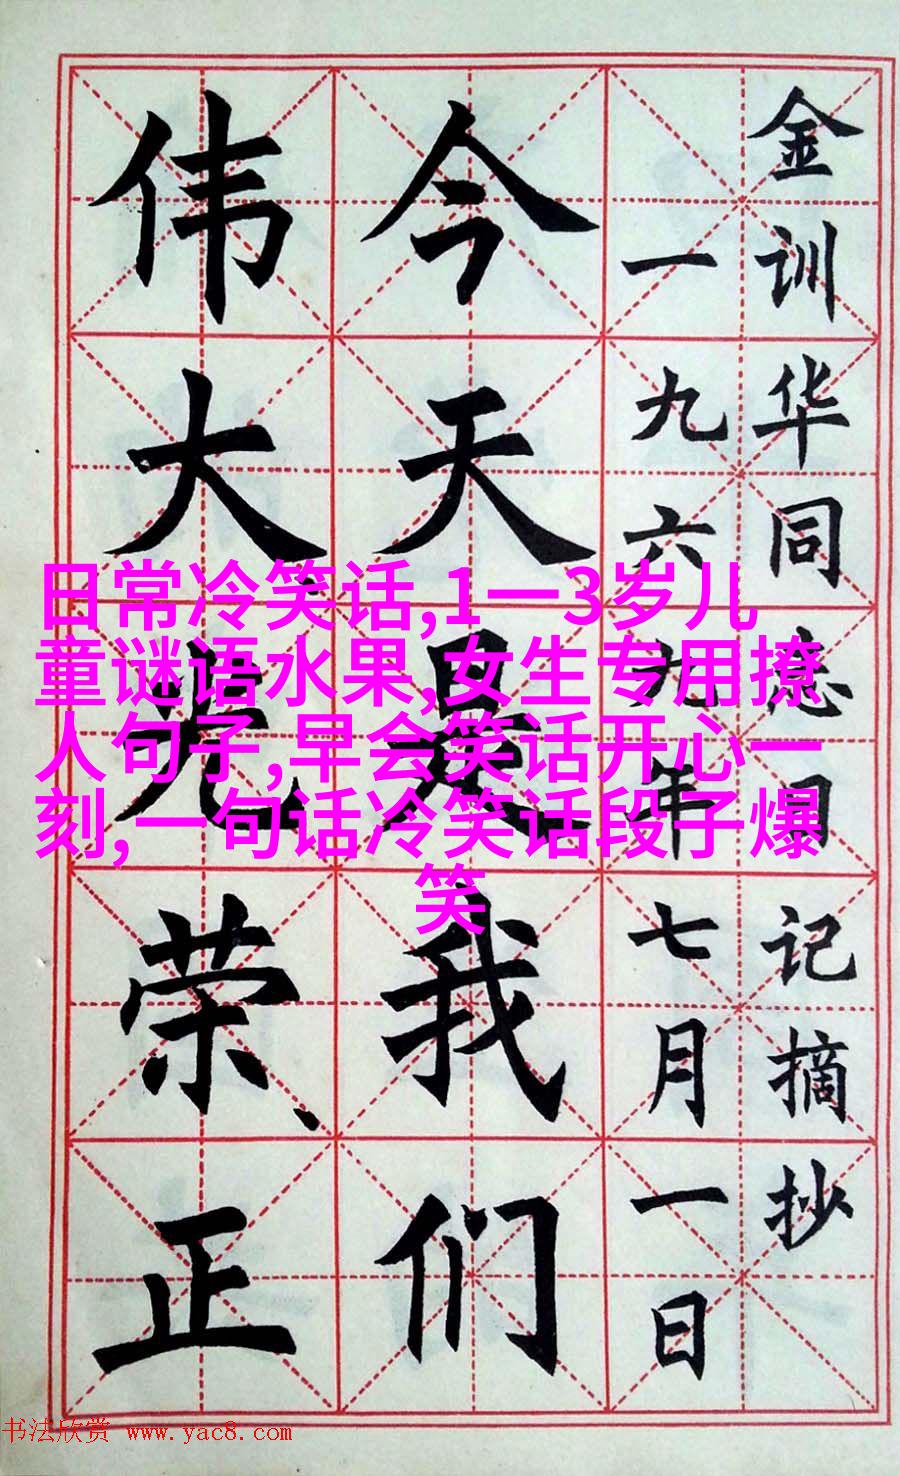 金训华同志日记摘抄
一九六九年七月一日
今天是我们
伟大、光荣、正
日常冷笑话,1一3岁儿
童谜语水果,女生专用撩
人句子,早会笑话开心一
刻,一句话冷笑话段子爆
笑
书法欣赏 www.yac8.com